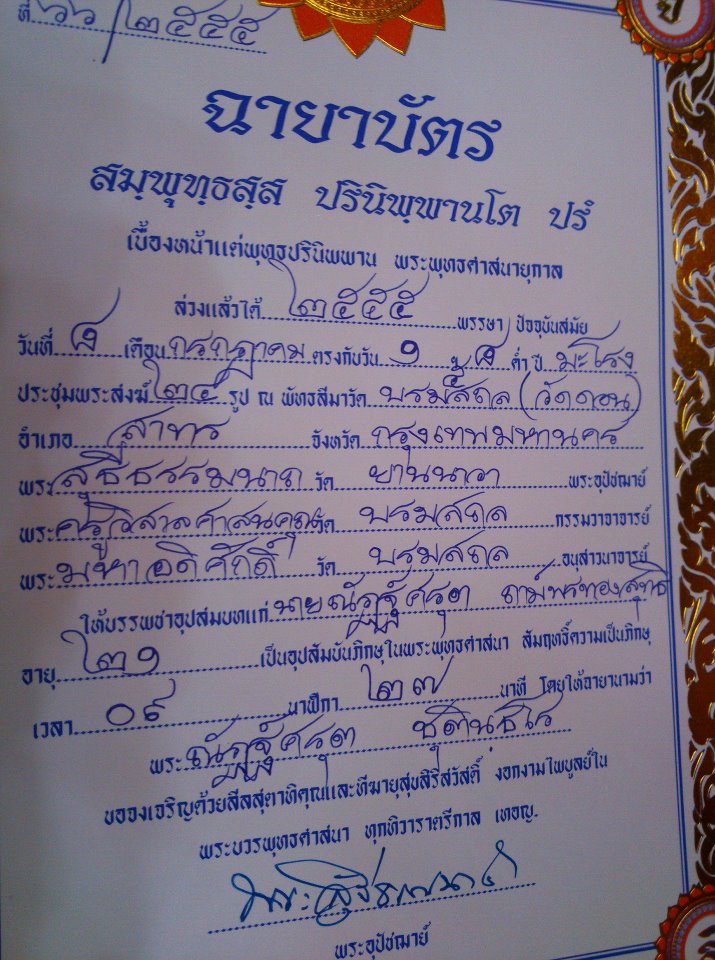 ที่ ๖๖/๒๕๕๕
ฉายาบัตร
สมฺพุทฺธสฺส ปรินิพฺพานโต ปรํ
เบื้องหน้าแต่พุทธปรินิพพาน พระพุทธศาสนายุกาล
ล่วงแล้วได้ ๒๕๕๕ พรรษา ปัจจุบันสมัย
วันที่ ๘ เดือน กรกฎาคม ตรงกับวัน ๑ ๘ ค่ำ ปี มะโรง
ประชุมพระสงฆ์ ๒๕ รูป ณ พัทธสีมาวัด บรมสถล (วัดดอน)
อำเภอ สาทร จังหวัด กรุงเทพมหานคร
พระ สุธีธรรมนาถ วัด ยานนาวา พระอุปัชฌาย์
พระ ครูวิสาลศาสนคุณ วัด บรมสถล กรรมวาจาจารย์
พระ มหาอดิศักดิ์ วัด บรมสถล อนุสาวนาจารย์
ให้บรรพชาอุปสมบทแก่ นาย
อายุ ๒๑ เป็นอุปสัมบันภิกษุในพระพุทธศาสนา สัมฤทธิ์ความเป็นภิกษุ
เวลา ๐๙ นาฬิกา ๒๗ นาที โดยให้ฉายานามว่า
พระ ชุตินฺธโร
ขอจงเจริญด้วยสีลสุตาทิคุณและทีฆายุสุขสิริสวัสดิ์ งอกงามไพบูลย์ใน
พระบวรพุทธศาสนา ทุกทิวาราตรีกาล เทอญ.
พระอุปัชฌาย์